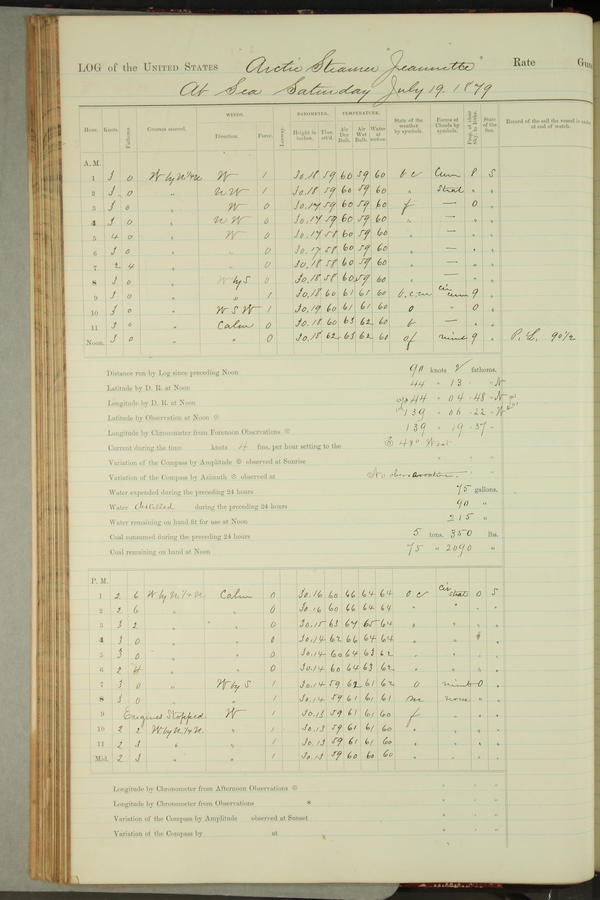 LOG of the UNITED STATES Arctic Steamer "Jeannette" Rate
At Sea Saturday July 19. 1879
WINDS. BAROMETER. TEMPERATURE.
Hour. Knots. Fathoms. Courses steered. Direction. Force. Leeway. Height in inches. Ther. att'd. Air Dry Bulb. Air Wet Bulb. Water at surface. State of the weather by symbols. Forms of Clouds by symbols. State of the Sea. Record of the sail the vessel is under at end of watch.
A. M.
1 3 0 W by N 1/4 N W 1 30.18 59 60 59 60 b c Cum 8 S
2 3 0 " N W 1 30.18 59 60 59 60 " Strat " "
3 3 0 " W 0 30.17 59 60 59 60 f — 0 "
4 3 0 " N W 0 30.17 59 60 59 60 " — " "
5 4 0 " W 0 30.17 58 60 59 60 " — " "
6 3 0 " " 0 30.17 58 60 59 60 " — " "
7 2 4 " " 0 30.18 58 60 59 60 " — " "
8 3 0 " W by S 0 30.18 58 60 59 60 " — " "
9 3 0 " " 1 30.18 60 61 61 60 b.c.m cir cum 9 "
10 3 0 " W S W 1 30.19 60 61 61 60 o " 0 "
11 3 0 " Calm 0 30.18 60 63 62 60 b — " "
Noon. 3 0 " " 0 30.18 62 63 62 60 of nimb 9 " P. L. 90 1/2
Distance run by Log since preceding Noon 90 knots 2 fathoms.
Latitude by D. R. at Noon 44 " 13 " " N
Longitude by D. R. at Noon 44 " 04 " 48 " N
Latitude by Observation at Noon 139 " 06 " 22 " W
Longitude by Chronometer from Forenoon Observations 139 " 19 " 37 "
Current during the time knots 4 fms. per hour setting to the S 48° West
Variation of the Compass by Amplitude observed at Sunrise
Variation of the Compass by Azimuth observed at No observation.
Water expended during the preceding 24 hours 75 gallons.
Water distilled during the preceding 24 hours 90 "
Water remaining on hand fit for use at Noon 215 "
Coal consumed during the preceding 24 hours 5 tons. 350 lbs.
Coal remaining on hand at Noon 75 " 2090 "
P. M.
1 2 6 W by N 1/4 N Calm 0 30.16 60 66 64 64 o c cir strat 0 S
2 2 6 " " 0 30.16 60 66 64 64 " " " "
3 3 2 " " 0 30.15 63 67 65 64 " " " "
4 3 0 " " 0 30.14 62 66 64 64 " " "
5 3 0 " " 0 30.14 60 64 63 62 " " " "
6 2 4 " " 0 30.14 60 64 63 62 " " " "
7 3 0 " W by S 1 30.14 59 62 61 62 o nimb 0 "
8 3 0 " " 1 30.14 59 61 61 61 none " "
9 Engines Stopped W 1 30.13 59 61 61 60 f - " "
10 2 2 W by N 1/4 N " 1 30.13 59 61 61 60 " " " "
11 2 3 " " 1 30.13 59 61 61 60 " " " "
Mid. 2 3 " " 1 30.13 59 60 60 60 " " " "
Longitude by Chronometer from Afternoon Observations
Longitude by Chronometer from Observations *
Variation of the Compass by Amplitude observed at Sunset
Variation of the Compass by at